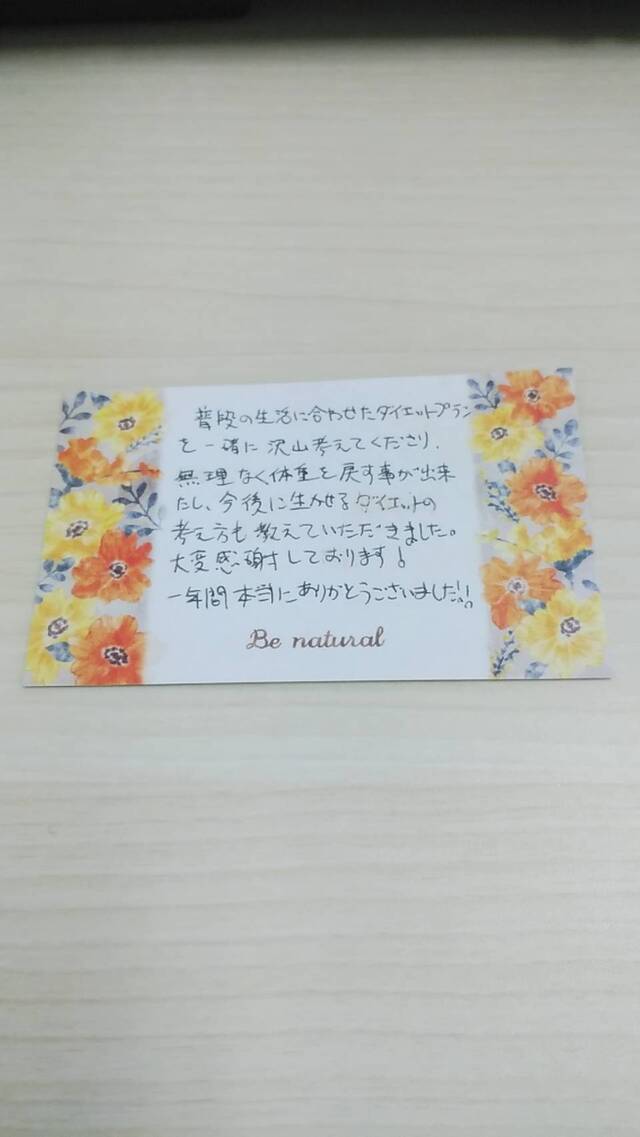 普段の生活に合わせたダイエットプラン
を一緒に沢山考えてくださり、
無理なく体重を戻す事が出来
たし、今後に生かせるダイエットの
考え方も教えていただきました。
大変感謝しております!
一年間本当にありがとうございました!!
Be natural